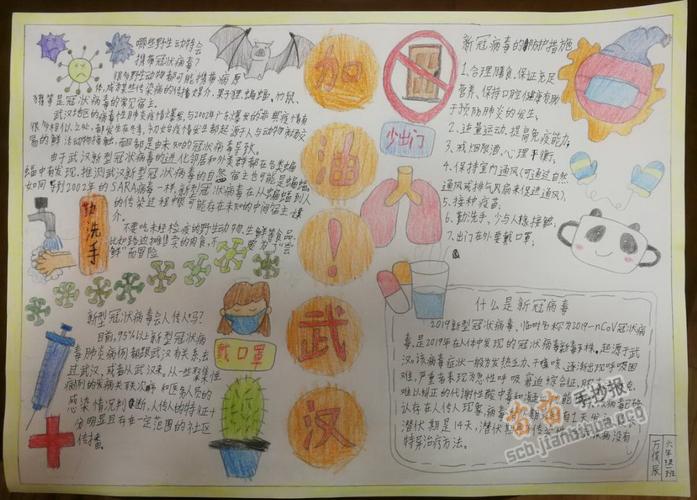 哪些野生动物会
携带冠状病毒?
很多野生动物都可能携带病原
体,成为某些传染病的传播媒介,果子狸、蝙蝠、竹鼠、
獾等是冠状病毒的常见宿主。
武汉地区的病毒性肺炎疫情爆发,与2002年广东爆发的
由于武汉新型冠状病毒的进化邻居和外类群都在各类蝙
蝠中有发现,推测武汉新型冠状病毒的自然宿主也可能是蝙蝠。
如同导致2002年的SARA病毒一样,新型冠状病毒在从蝙蝠到人
的传染过程中很可能存在未知的中间宿主媒
介。
不要吃未经检疫的野生动物、生鲜等食品,
比如路边摊售卖的肉食,不要为了“尝
鲜”而冒险
勤洗手
加
油
!
武
汉
少出门
新冠病毒的防护措施
1、合理膳食,保证充足
营养,保持口腔健康有助
于预防肺炎的发生;
2、适量运动,提高免疫能力;
3、戒烟限酒、心理平衡;
4、保持室内通风(可通过自然
通风或排气风扇来促进通风);
5、接种疫苗;
6、勤洗手,少与人接触;
7、出门在外要戴口罩;
新型冠状病毒会人传人吗?
目前,95%以上新型冠状病
毒肺炎病例都跟武汉有关系,去
过武汉,或者从武汉来。从一些聚集性
病例的发病关联次序和医务人员的
感染情况判断,人传人的特征十
分明显且存在一定范围的社区
传播。
戴口罩
什么是新冠病毒
2019新型冠状病毒,临时名称为2019-nCoV冠状病
毒,是2019年在人体中发现的冠状病毒新毒株。起源于武
汉。该病毒症状一般为发热、乏力、干咳、逐渐出现呼吸困
难,严重者表现为急性呼吸窘迫综合征、
难以纠正的代谢性酸中毒和
认存在人传人现象,
潜伏期是14天,潜伏期
特异治疗方法。
六年级班
苗苗手抄报
scb.jianglihua.org.cn